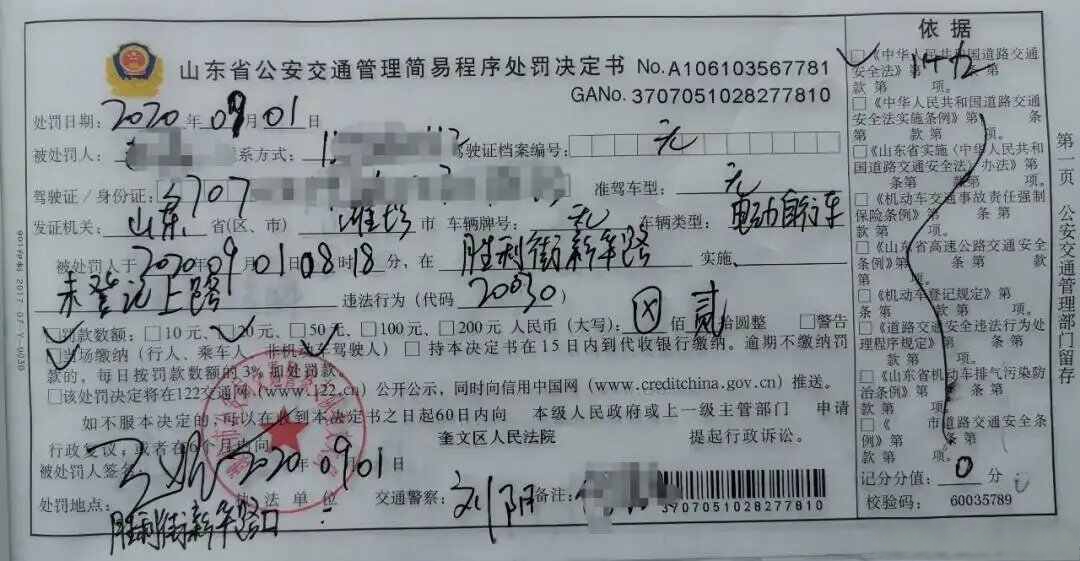 山东省公安交通管理简易程序处罚决定书 No.A106103567781
GANo. 3707051028277810
处罚日期: 2020年09月01日
被处罚人: 联系方式: 驾驶证档案编号: 无
驾驶证/身份证: 3707 准驾车型: 无
发证机关: 山东 省(区、市) 潍坊 市 车辆牌号: 无 车辆类型: 电动自行车
被处罚人于2020年09月01日08时18分,在 胜利街新华路 实施
未登记上路 违法行为(代码 20030)
☑罚款数额:□10元、☑20元、□50元、□100元、□200元 人民币(大写): ⊠佰 贰 拾圆整 □警告
☑当场缴纳(行人、乘车人、非机动车驾驶人) □持本决定书在15日内到代收银行缴纳。逾期不缴纳罚
款的,每日按罚款数额的3%加处罚款
□该处罚决定将在122交通网(www.122.cn)公开公示,同时向信用中国网(www.creditchina.gov.cn)推送。
如不服本决定的,可以在收到本决定书之日起60日内向 本级人民政府或上一级主管部门 申请
行政复议,或者在6个月内向 奎文区人民法院 提起行政诉讼。
被处罚人签名 2020年09月01日
处罚地点: 执法单位 交通警察: 刘阴 备注:
胜利街新华路口
3907051028277810
依据
☑《中华人民共和国道路交通
安全法》第 条 第
款 第 项。
□《中华人民共和国道路交通
安全法实施条例》第 条
款 第 项。
□《山东省实施〈中华人民共和
国道路交通安全法〉办法》第
条第 款第 项。
□《机动车交通事故责任强制
保险条例》第 条 第 款
□《山东省高速公路交通安全
条例》第 条 第 款
□《机动车登记规定》第
条 第 款 第 项。
□《道路交通安全违法行为处
理程序规定》第 条
款 第 项。
□《山东省机动车排气污染防
治条例》第 条 第 款
□《 市道路交通安全条
例》第 条 第
款 第 项。
记分分值: 0 分
校验码: 60035789
第一页 公安交通管理部门留存